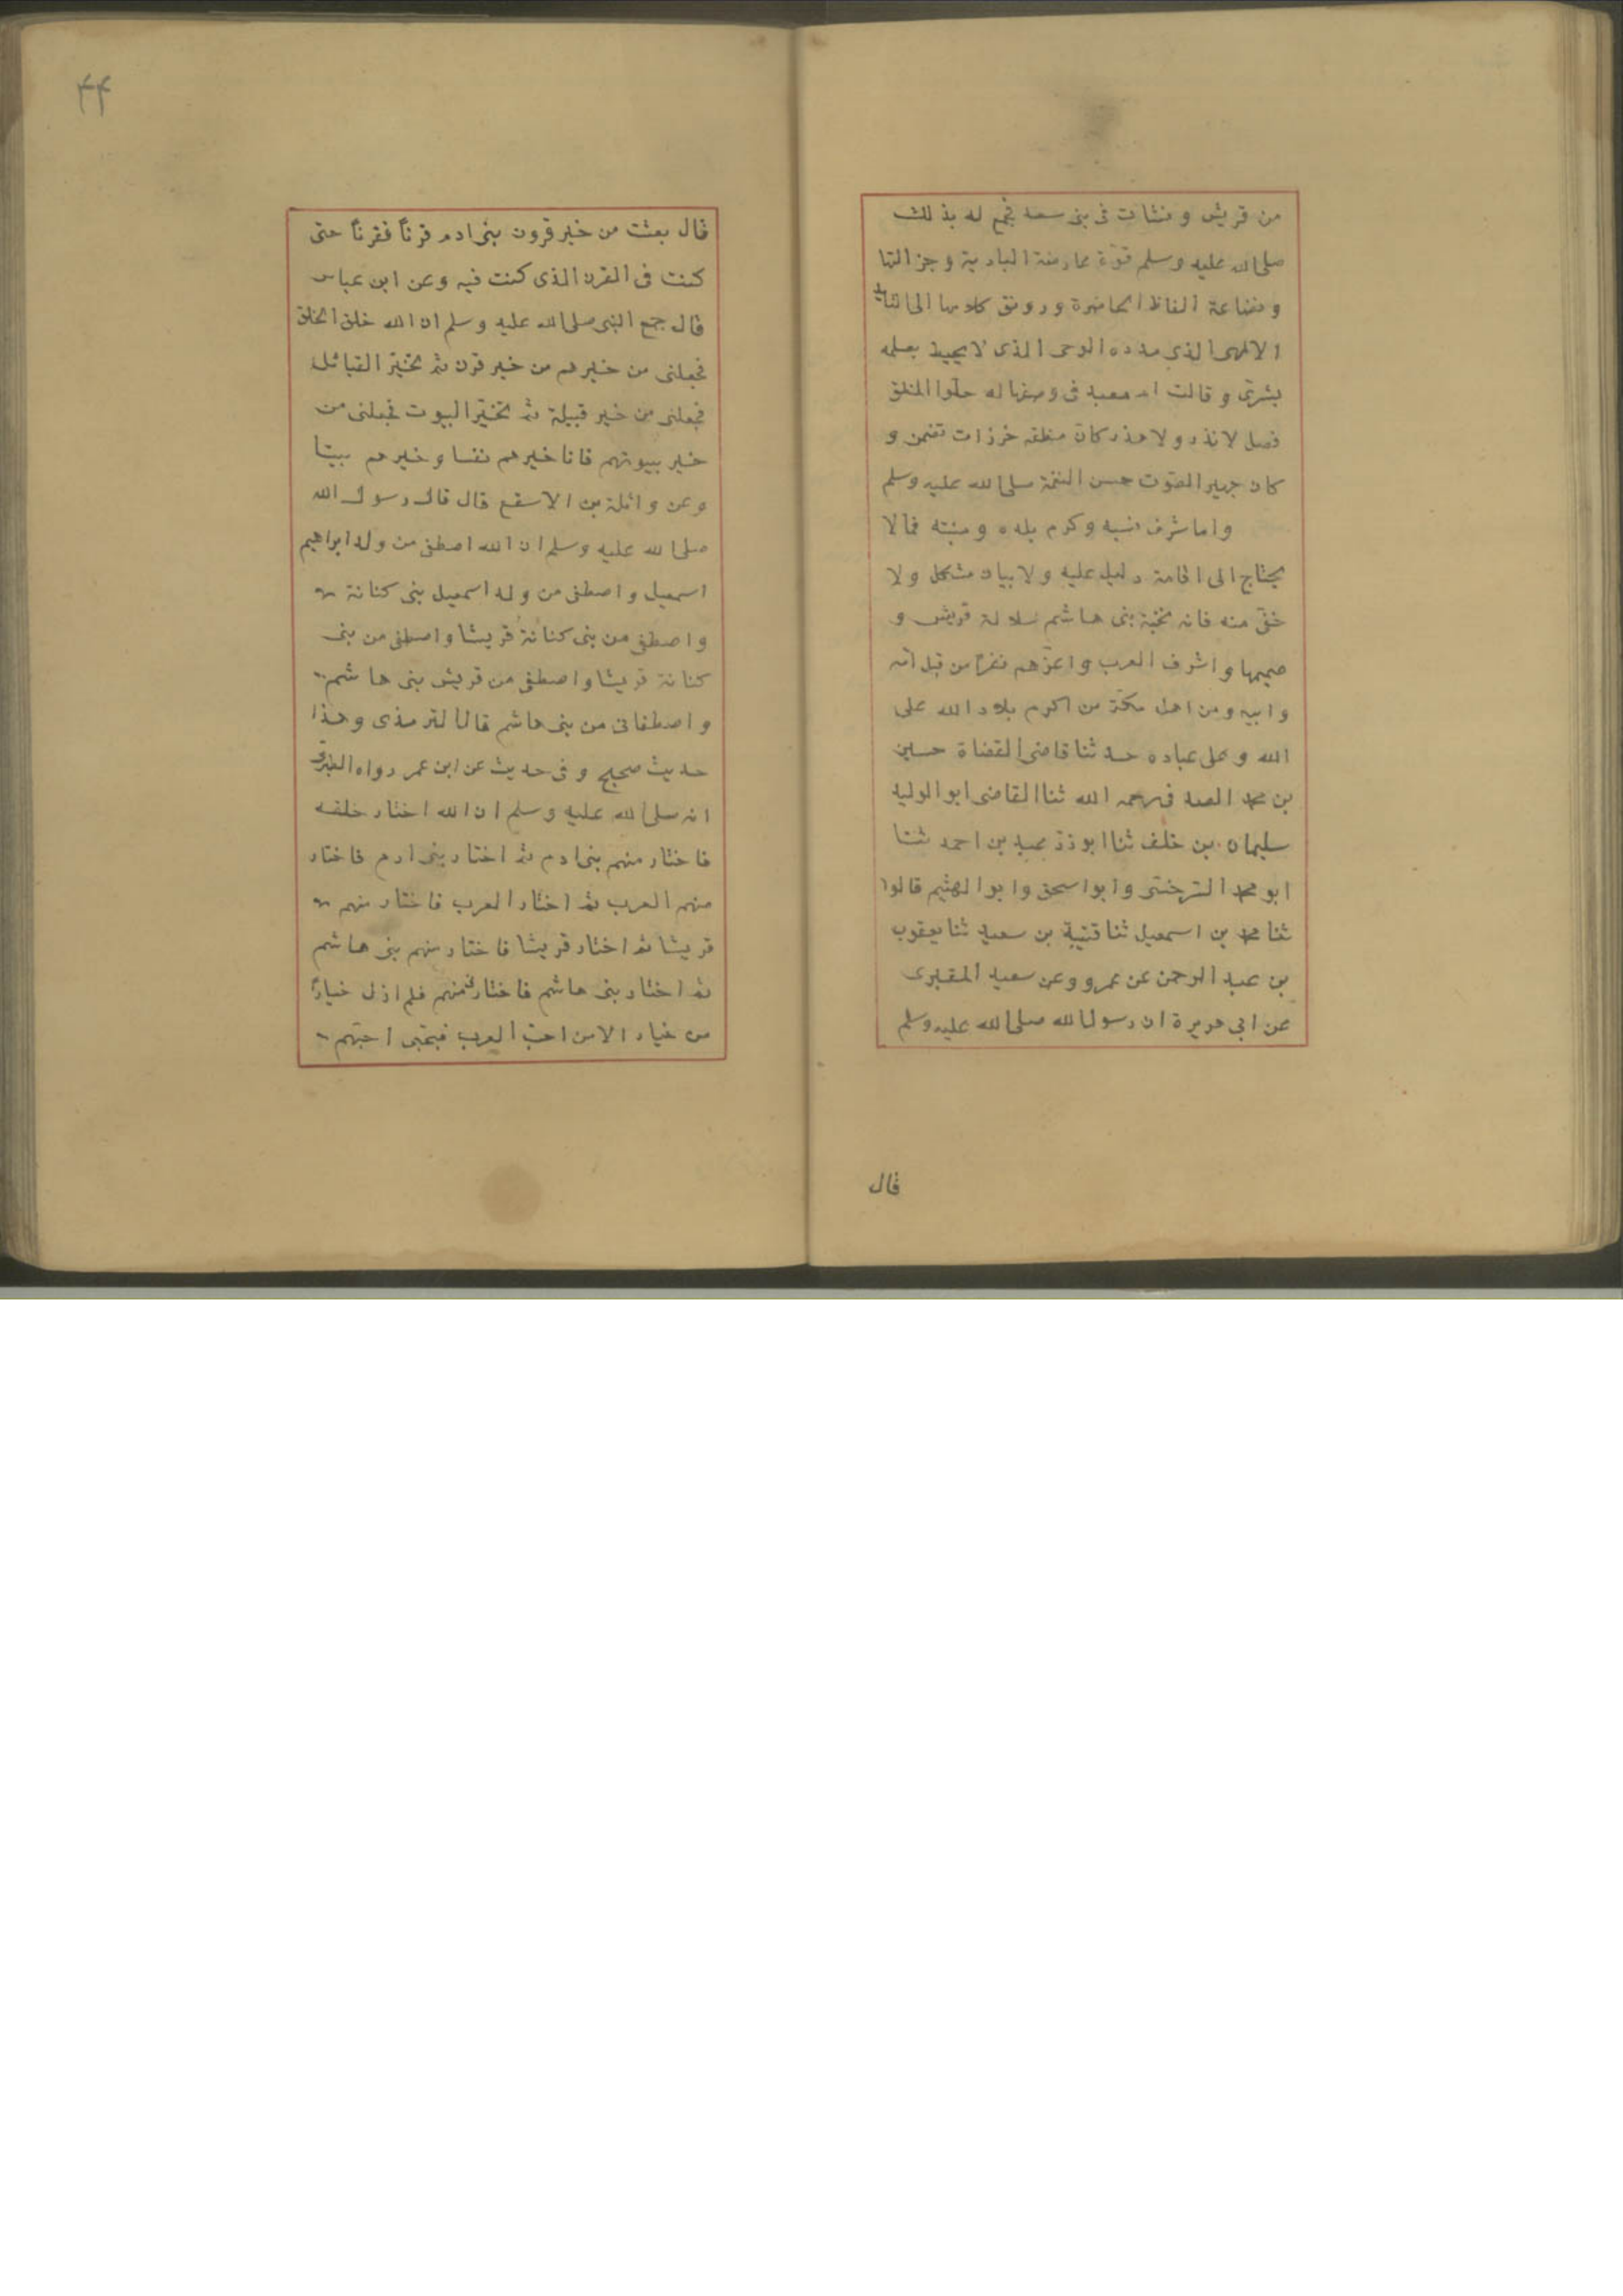 من قريش ونشات فى بنى سعد فجمع له بذلك
صلى الله عليه وسلم قوة عارضة البادية وجزالتها
ونصاعة الفاظ الحاضرة ورونق كلامها الى التاييد
الالهى الذى مدده الوحى الذى لا يحيط بعلمه
بشرى وقالت ام معبد فى وصفها له حلوا المنطق
فصل لا نذر ولا هذر كان منطقه خرزات نظمن و
كان جهير الصوت حسن النغمة صلى الله عليه وسلم
واما شرف نسبه وكرم بلده ومنبته فمالا
يحتاج الى اقامة دليل عليه ولا بيان مشكل ولا
خفى منه فانه نخبة بنى هاشم سلالة قريش و
صميمها واشرف العرب واعزهم نفرا من قبل امه
وابيه ومن اهل مكة من اكرم بلاد الله على
الله وعلى عباده حدثنا قاضى القضاة حسين
بن محمد الصدفى رحمه الله ثنا القاضى ابو الوليد
سليمان بن خلف ثنا ابو ذر عبد بن احمد ثنا
ابو محمد السرخسى وابو اسحق وابو الهثيم قالوا
ثنا محمد بن اسمعيل ثنا قتيبة بن سعيد ثنا يعقوب
بن عبد الرحمن عن عمرو وعن سعيد المقبرى
عن ابي هريرة ان رسول الله صلى الله عليه وسلم
قال
۴۴
قال بعثت من خير قرون بنى ادم قرناً فقرناً حتى
كنت فى القرن الذى كنت فيه وعن ابن عباس
قال جمع النبى صلى الله عليه وسلم ان الله خلق الخلق
فجعلنى من خيرهم من خير قرن ثم تخيّر القبائل
فجعلنى من خير قبيلة ثم تخيّر البيوت فجعلنى من
خير بيوتهم فانا خيرهم نفسا وخيرهم بيتا
وعن واثلة بن الاسقع قال قال رسول الله
صلى الله عليه وسلم ان الله اصطفى من ولد ابراهيم
اسمعيل واصطفى من ولد اسمعيل بنى كنانة
واصطفى من بنى كنانة قريشا واصطفى من بنى
كنانة قريشا واصطفى من قريش بنى هاشم
واصطفانى من بنى هاشم قال الترمذى وهذا
حديث صحيح وفى حديث عن ابن عمر رواه الطبرى
انه صلى الله عليه وسلم ان الله اختار خلقه
فاختار منهم بنى ادم ثم اختار بنى ادم فاختار
منهم العرب ثم اختار العرب فاختار منهم
قريشا ثم اختار قريشا فاختار منهم بنى هاشم
ثم اختار بنى هاشم فاختارنى منهم فلم ازل خيارًا
من خيار الا من احب العرب فبحبى احبهم